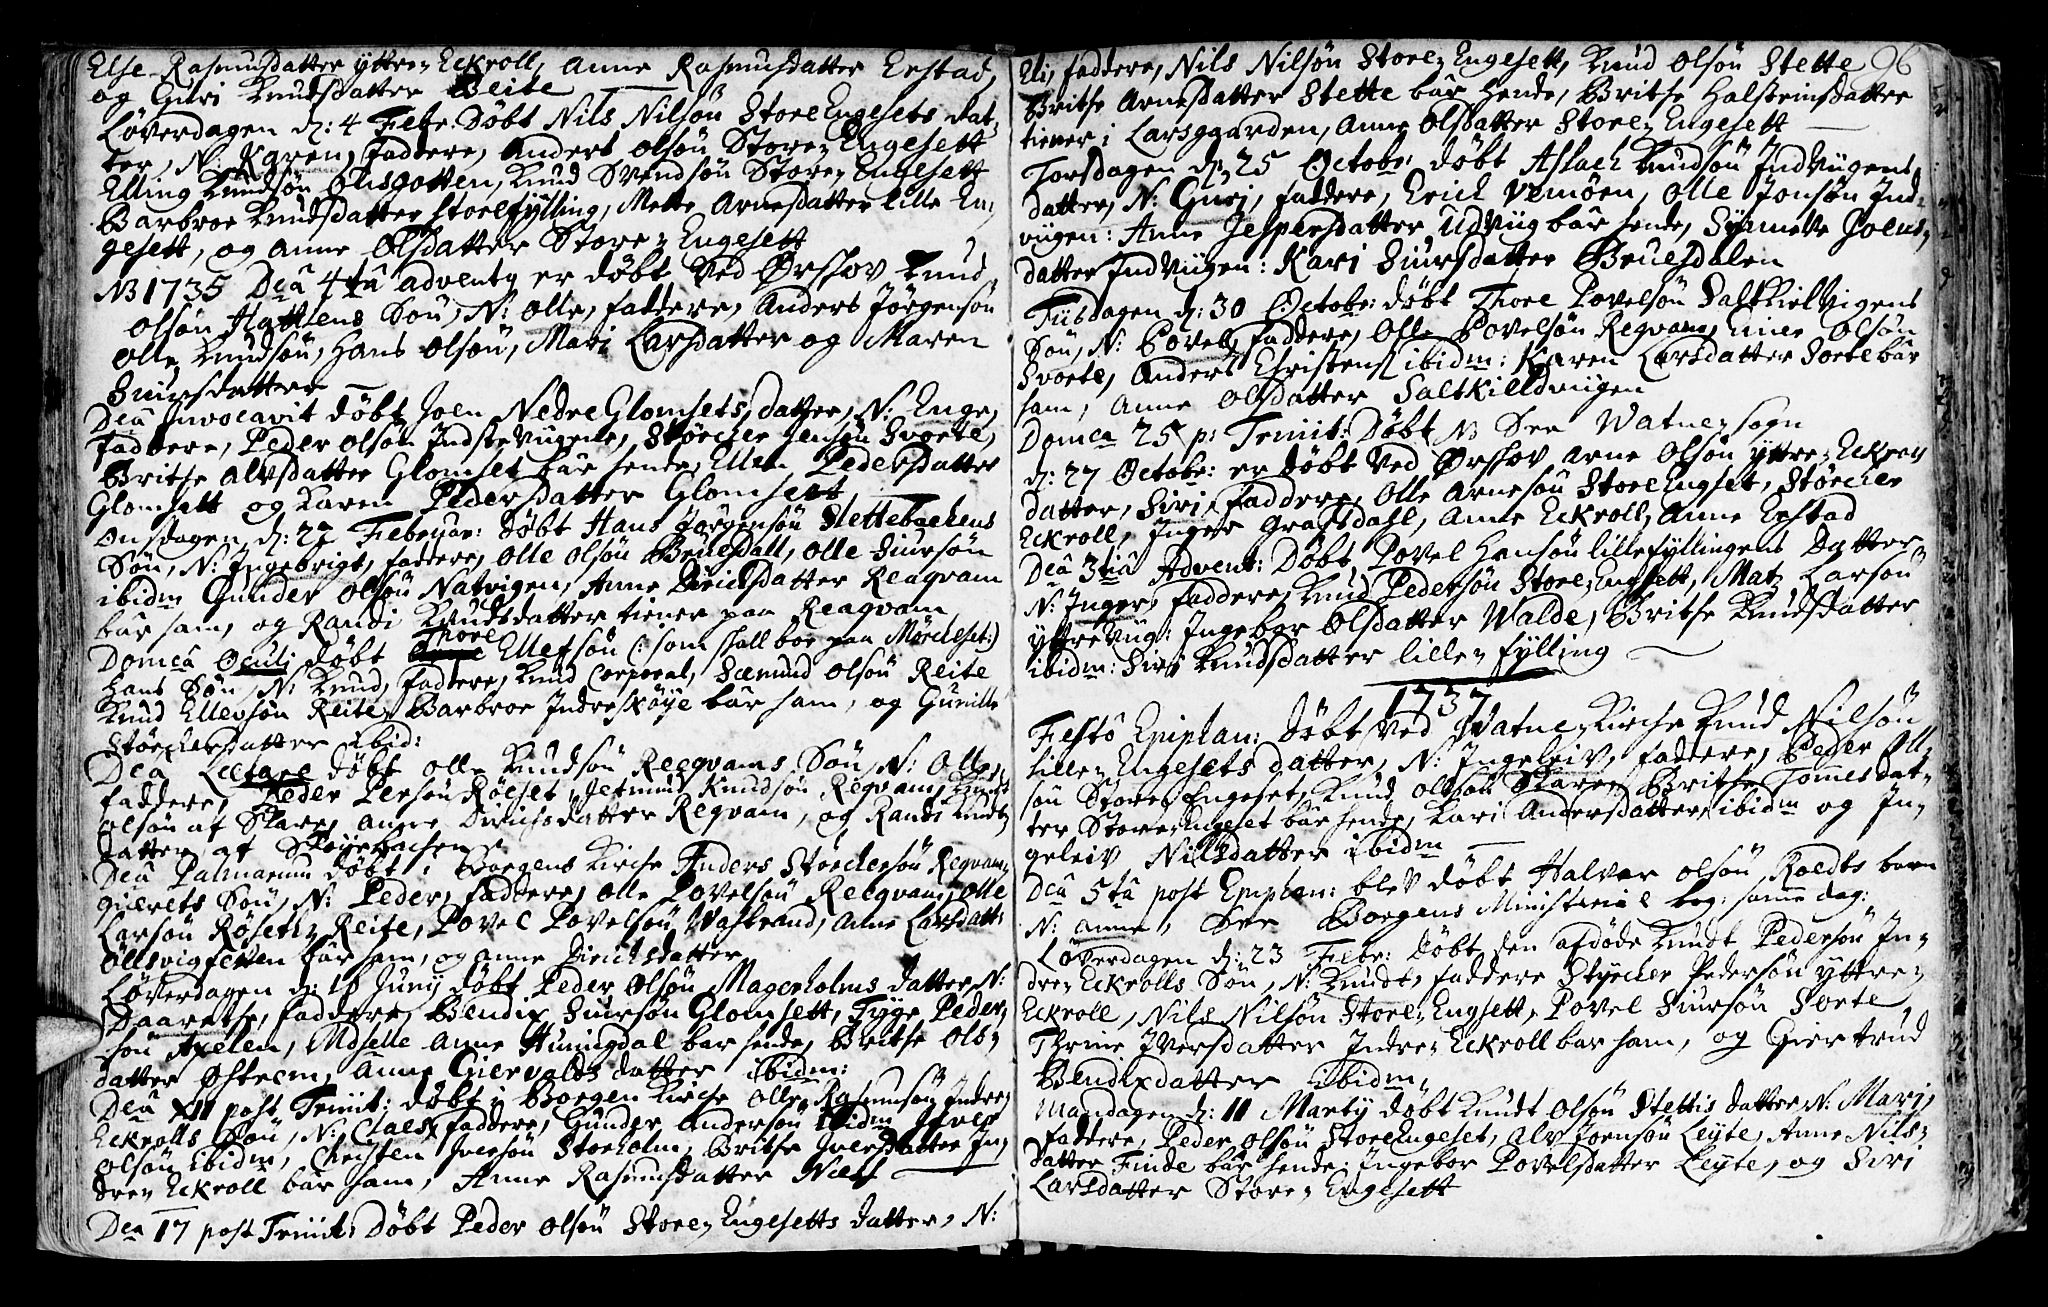 Else Rasmusdatter yttre Eckroll, Anne Rasmusdatter Erstad,
og Guri Knudsdatter Reite
Løverdagen d: 4 Febr: Døbt Nils Nilsøn Store Engesets dat-
ter, N: Karen, faddere, Anders Olsøn Store-Engesett
Elling Knudsøn, Knud Svendsøn Store-Engesett
Barbroe Knudsdatter Storefylling, Mette Arnesdatter lille En-
gesett, og Anne Olsdatter Store-Engesett
NB 1735 Dca 4ta Adventg er døbt ved Ørschov Knud
Olsøn Hattlens Søn, N: Olle, faddere, Anders Jørgensøn
Olle Knudsøn, Hans Olsøn, Mari Larsdatter og Maren
Siursdatter
Dca Invocavit døbt Joen Nedre Glomsets datter, N: Enge,
faddere, Peder Olsøn Indstevugene, Størcher Jensøn Svorte,
Brithe Alvsdatter Glomset bar hende, Ellen Pedersdatter
Glomsett og Karen Pedersdatter Glomsett
Onsdagen d: 22 Februar: Døbt Hans Jørgensøn Stettebachens
Søn, N: Ingebrigt, faddere, Olle Olsøn Bruesdall, Olle Siursøn
ibidm Gunder Olsøn Natvigen, Anne Dirichsdatter Reaqvam
bar ham, og Randi Knudsdatter tiener paa Reaqvam
Domca Oculi døbt Thore Ellefsøn (: som skall boe paa Mørcheset:)
hans Søn, N: Knud, faddere, Knud Corporal, Sæmund Olsøn Reite
Knud Ellevsøn Reite, Barbroe Indreskøye bar ham, og Gunille
Størchersdatter ibid:
Dca Lætare døbt Olle Knudsøn Reqvams Søn, N: Olle,
faddere, Peder Persøn Røeset, Jetmund Knudsøn Reqvam, Knud
Olsøn af Skare, Anne Dirichsdatter Reqvam, og Randi Knuds
datter af Skøyebachen
Dca Palmarum døbt i Borgens Kirche Anders Størchersøn Reqvam
Søn, N: Peder, faddere, Olle Povelsøn Reeqvam, Olle
Larsøn Røseth-Reite, Povel Povelsøn Wastrand, Anne Larsdatter
bar ham, og Anne Dirichsdatter
Løverdagen d: 16 Junij døbt Peder Olsøn Magerholms datter, N:
Daarethe, faddere, Bendix Siursøn Glomsett, Tyge Peder-
søn Axelen, Mdselle Anne Huningdal bar hende, Brithe Ols-
datter Østrem, Anne Giervalds datter ibidm:
Dca XII post Trinit: døbt i Borgen Kirche Olle Rasmusøn Indre
Eckrolls Søn, N: Claes, faddere, Gunder Andersøn ibidm Iver
Olsøn ibidm, Christen Iversøn Storholm, Brithe Iversdatter In-
dre-Eckroll bar ham, Anne Rasmusdatter
Dca 17 post Trinit: Døbt Peder Olsøn Store-Engesetts datter, N:
Eli, faddere, Nils Nilsøn Store-Engesett, Knud Olsøn Stette 96
Brithe Arnesdatter Stette bar hende, Brithe Halsteinsdatter
tiener i Larsgaarden, Anne Olsdatter Store-Engesett
Torsdagen d: 25 Octobr: døbt Aslach Knudsøn Indvugens
datter, N: Guri, faddere, Erich Vemøen, Olle Jonsøn Ind-
viigen: Anne Jespersdatter Udviig bar hende, Synneve Joens-
datter Indviigen: Kari Siursdatter Bruesdalen
Tiisdagen d: 30 Octobr: døbt Thore Povelsøn Saltkielvigens
Søn, N: Povel, faddere, Olle Povelsøn Reqvam, Einer Olsøn
Svorte, Anders Christens: ibidm: Karen Larsdatter Sorte bar
ham, Anne Olsdatter Saltkilldviigen
Domca 25 p: Trinit: Døbt NB See Watne-sogn
d: 27 Octobr: er døbt ved Ørschov Arne Olsøn yttre-Eckroll
datter, Siri, faddere, Olle Arnesøn Store Engset, Størcher
Eckroll, Inger Grafsdahl, Anne Eckroll, Anne Erstad
Dca 3tia Advent: Døbt Povel Hansøn lillefyllingens Datter
N: Inger, faddere, Knud Pedersøn Store-Engsett, Matz Larsøn
yttreviig: Ingebor Olsdatter Walde, Brithe Knudsdatter
ibidm: Siri Knudsdatter lille-fylling
1737
Festo Epiphan: døbt ved Watne-Kirche Knud Nilsøn
lille-Engesets datter, N: Ingeleiv, faddere, Peder Oll-
søn Store Engeset, Knud Olsøn Skare, Brithe Tomesdat-
ter Store-Engeset bar hende, Kari Andersdatter ibidm og In-
geleiv Nilsdatter ibidm
Dca 5ta post Epiphan: blev døbt Halvar Olsøn Roedts barn
N: Anne, See Borgens Ministerial bog: samme dag:
Løverdagen d: 23 Febr: Døbt den afdøde Knudt Pedersøn In-
dre-Eckrolls Søn, N: Knudt, faddere Styrcher Pedersøn yttre-
Eckroll, Nils Nilsøn Store-Engsett, Povel Siursøn Sorte,
Thrine Iversdatter Indre-Eckroll bar ham, og Giertrud
Bendixdatter ibidm:
Mandagen d: 11 Martij døbt Knudt Olsøn Stettis datter N: Mari,
faddere, Peder Olsøn Store Engeset, Alv Joensøn Leyte, Anne Nils-
datter Finde bar hende: Ingebor Povelsdatter Leyte, og Siri
Larsdatter Store-Engesett